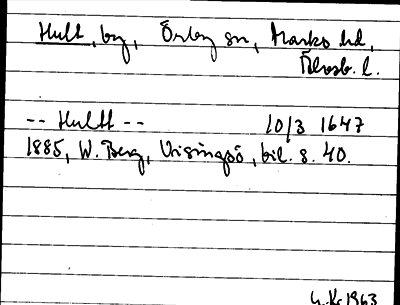 Hult, by, Örby sn, Marks hd,
Älvsb. l.
-- Hultt -- 10/3 1647
1885, W. Berg, Visingsö, bil. s. 40.
G. Kr 1963